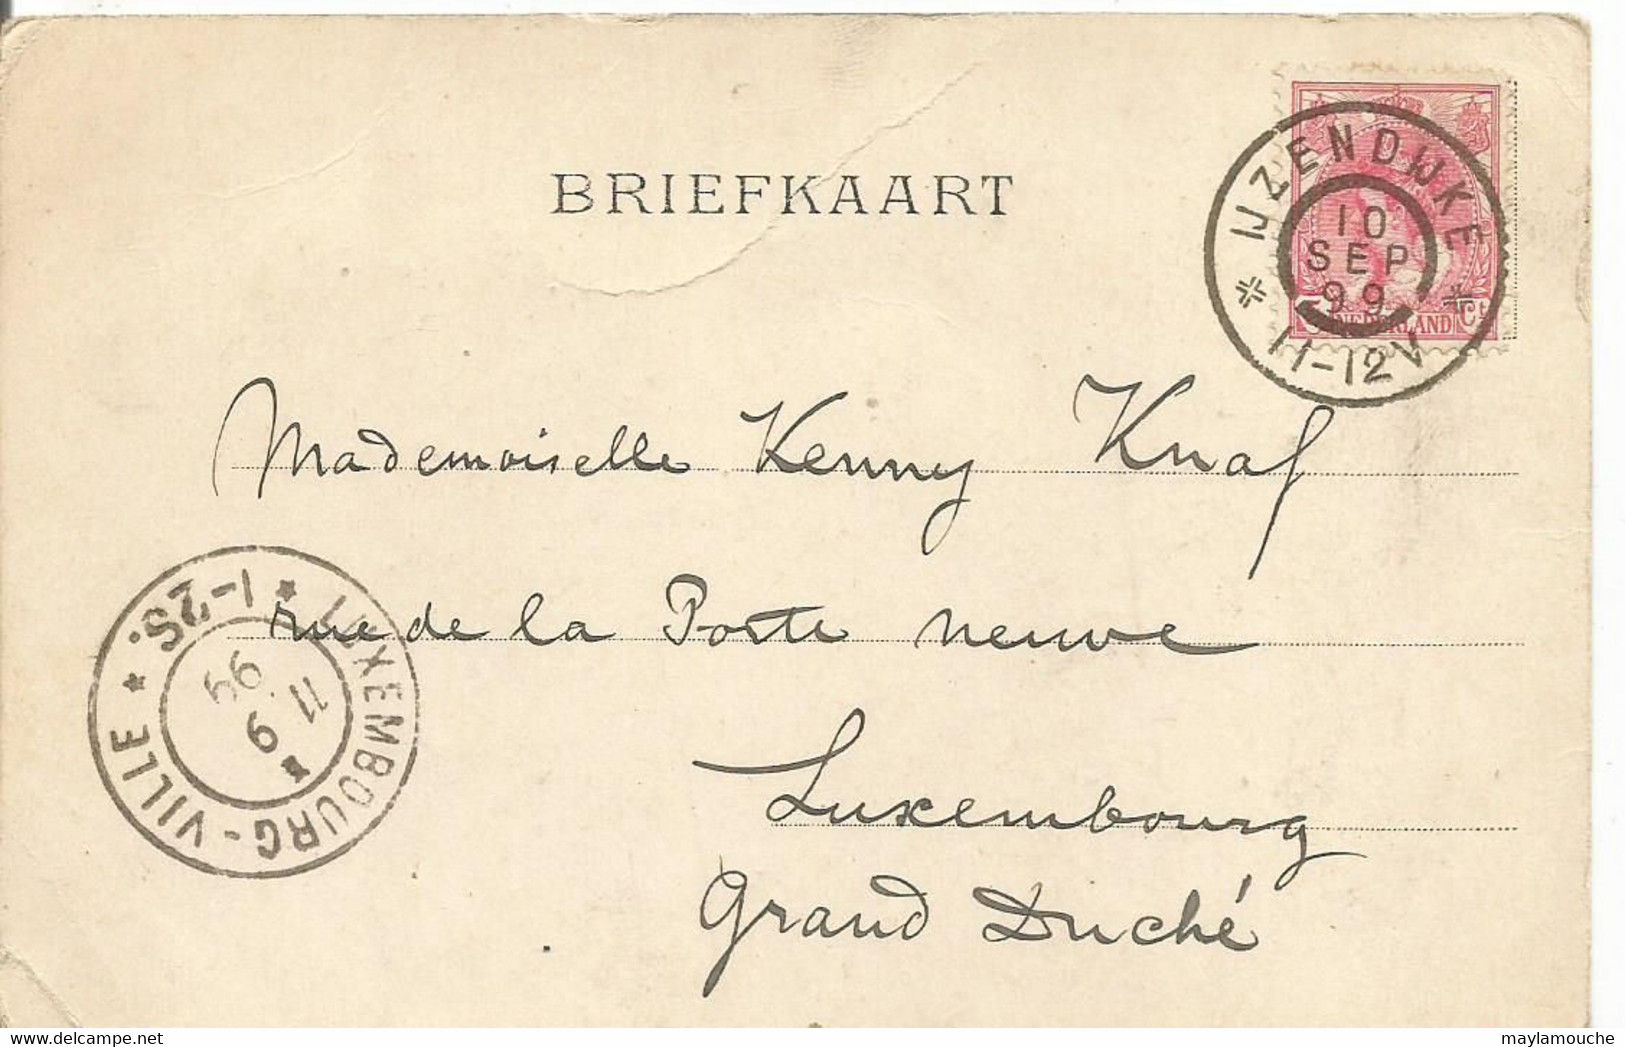 BRIEFKAART
IJZENDIJKE
10
SEP
99
11-12V
5 NEDERLAND Ct
Mademoiselle Kenny Knaf
rue de la Porte neuve
Luxembourg
Grand Duché
LUXEMBOURG-VILLE
1-2S.
11 9
99
maylamouche